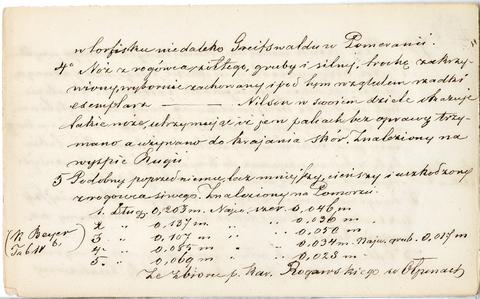 w torfisku niedaleko Greifswaldu w Pomeranii.
4° Nóż z rogowca żółtego, gruby i silny, trochę zakrzy-
wiony, wybornie zachowany i pod tym względem rzadki
exemplarz ——— Nilson w swoiém dziele okazuje
takie noże, utrzymując iż je w palcach bez oprawy trzy-
mano a używano do krajania skór. Znaleziony na
wyspie Rugii
5 Podobny poprzedniemu, lecz mniejszy, cieńszy i uszkodzony
z rogowca siwego. Znaleziony na Pomorzu.
1. Dług. 0,203 m. Najw. szer. 0,046 m.
2 " 0,137 m. " 0,036 m
3 " 0,107 m. " 0,050 m
4. " 0,085 m " 0,034 m. Najw. grub. 0,017 m
5. " 0,069 m " 0,023 m.
(N. Beyer
Tab. IV 6.)
Ze zbioru p. Kar. Rogawskiego w Ołpinach